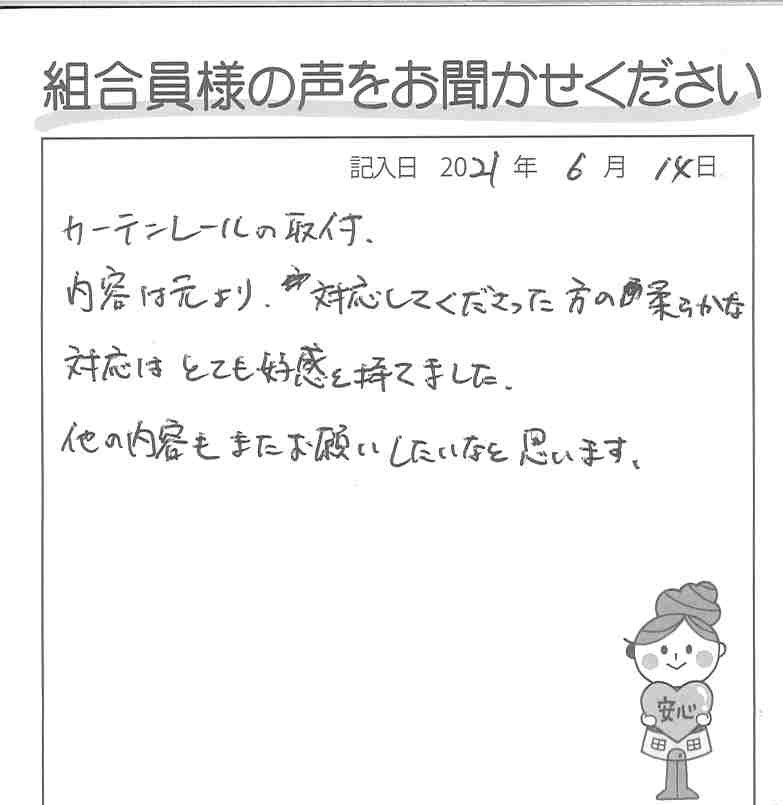 組合員様の声をお聞かせください
記入日 2021年 6月 14日
カーテンレールの取付、
内容は元より、対応してくださった方の柔らかな
対応はとても好感を持てました。
他の内容もまたお願いしたいなと思います。
安心